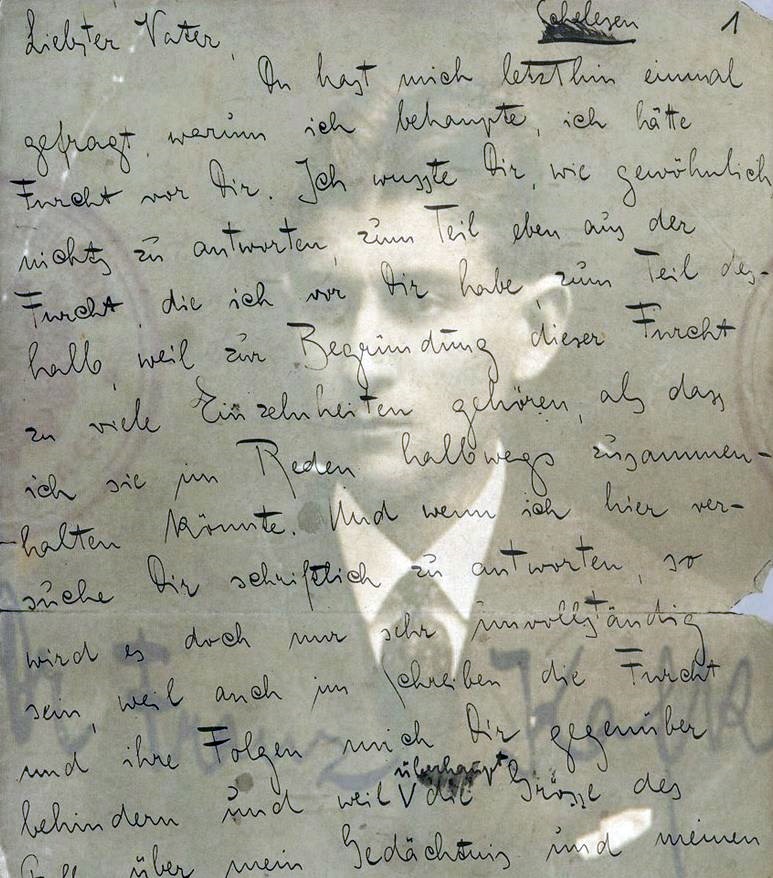 Schelesen 1
Liebster Vater,
Du hast mich letzthin einmal
gefragt, warum ich behaupte, ich hätte
Furcht vor Dir. Ich wusste Dir, wie gewöhnlich
nichts zu antworten, zum Teil eben aus der
Furcht, die ich vor Dir habe, zum Teil des-
halb, weil zur Begründung dieser Furcht
zu viele Einzelnheiten gehören, als dass
ich sie im Reden halbwegs zusammen-
halten könnte. Und wenn ich hier ver-
suche Dir schriftlich zu antworten, so
wird es doch nur sehr unvollständig
sein, weil auch im Schreiben die Furcht
und ihre Folgen mich Dir gegenüber
überhaupt
behindern und weil V die Grösse des
über mein Gedächtnis und meinen
Dr Franz Kafka